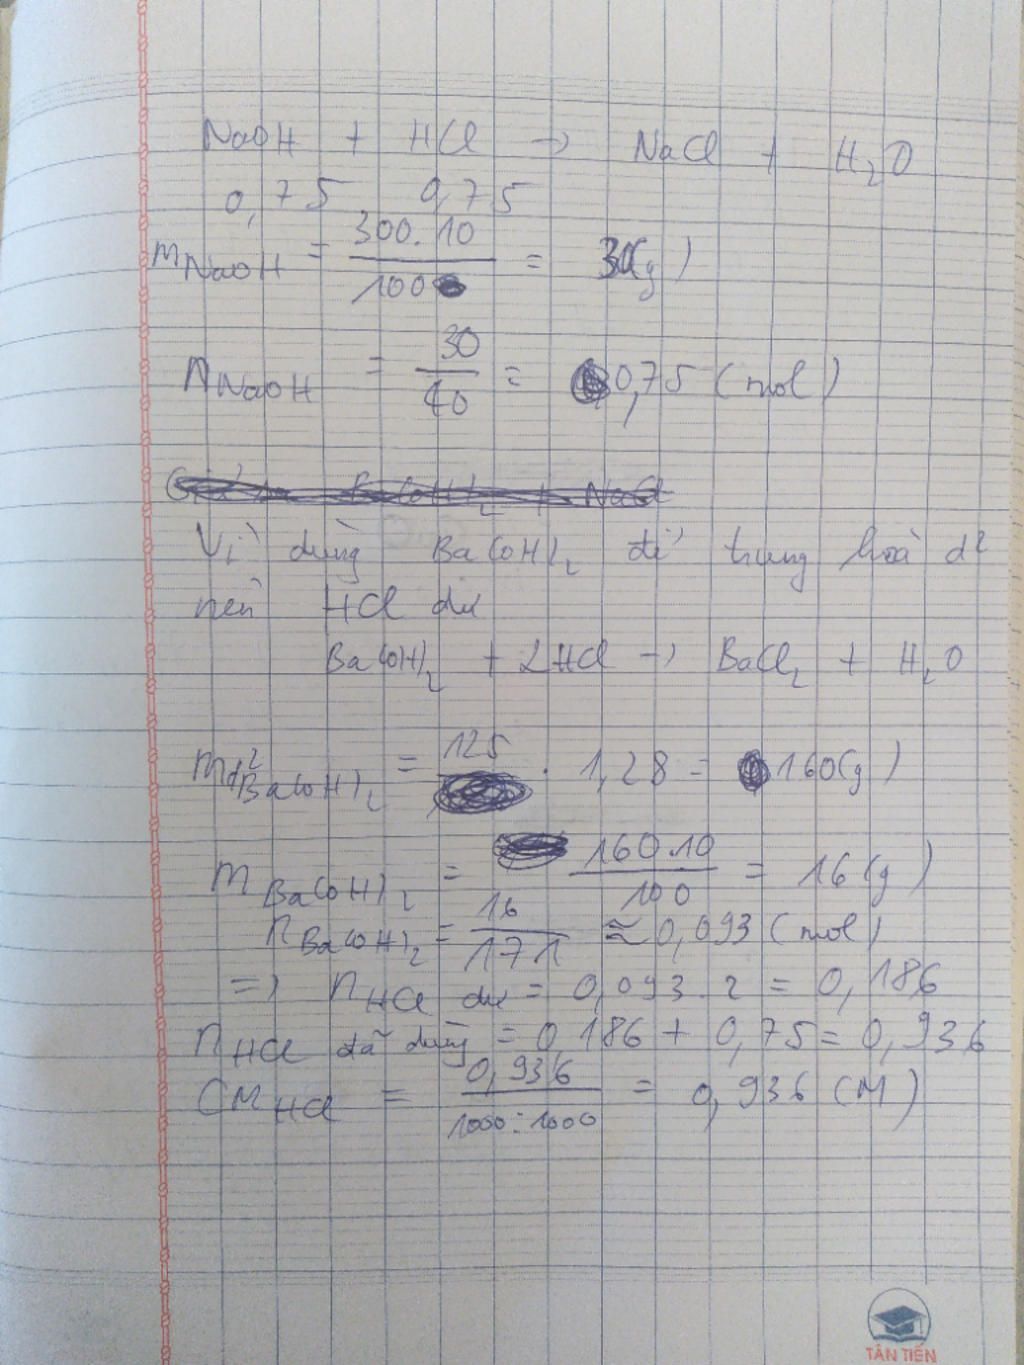 NaOH + HCl → NaCl + H₂O
0,75 0,75
mNaOH = 300.10/100 = 30(g)
nNaOH = 30/40 = 0,75 (mol)
Vì dùng Ba(OH)₂ để trung hoà d²
nên HCl dư
Ba(OH)₂ + 2HCl → BaCl₂ + H₂O
md²Ba(OH)₂ = 125 . 1,28 = 160(g)
mBa(OH)₂ = 160.10/100 = 16(g)
nBa(OH)₂ = 16/171 ≈ 0,093 (mol)
=> nHCl dư = 0,093.2 = 0,186
nHCl đã dùng = 0,186 + 0,75 = 0,936
CMHCl = 0,936/1000:1000 = 0,936 (M)
TÂN TIẾN